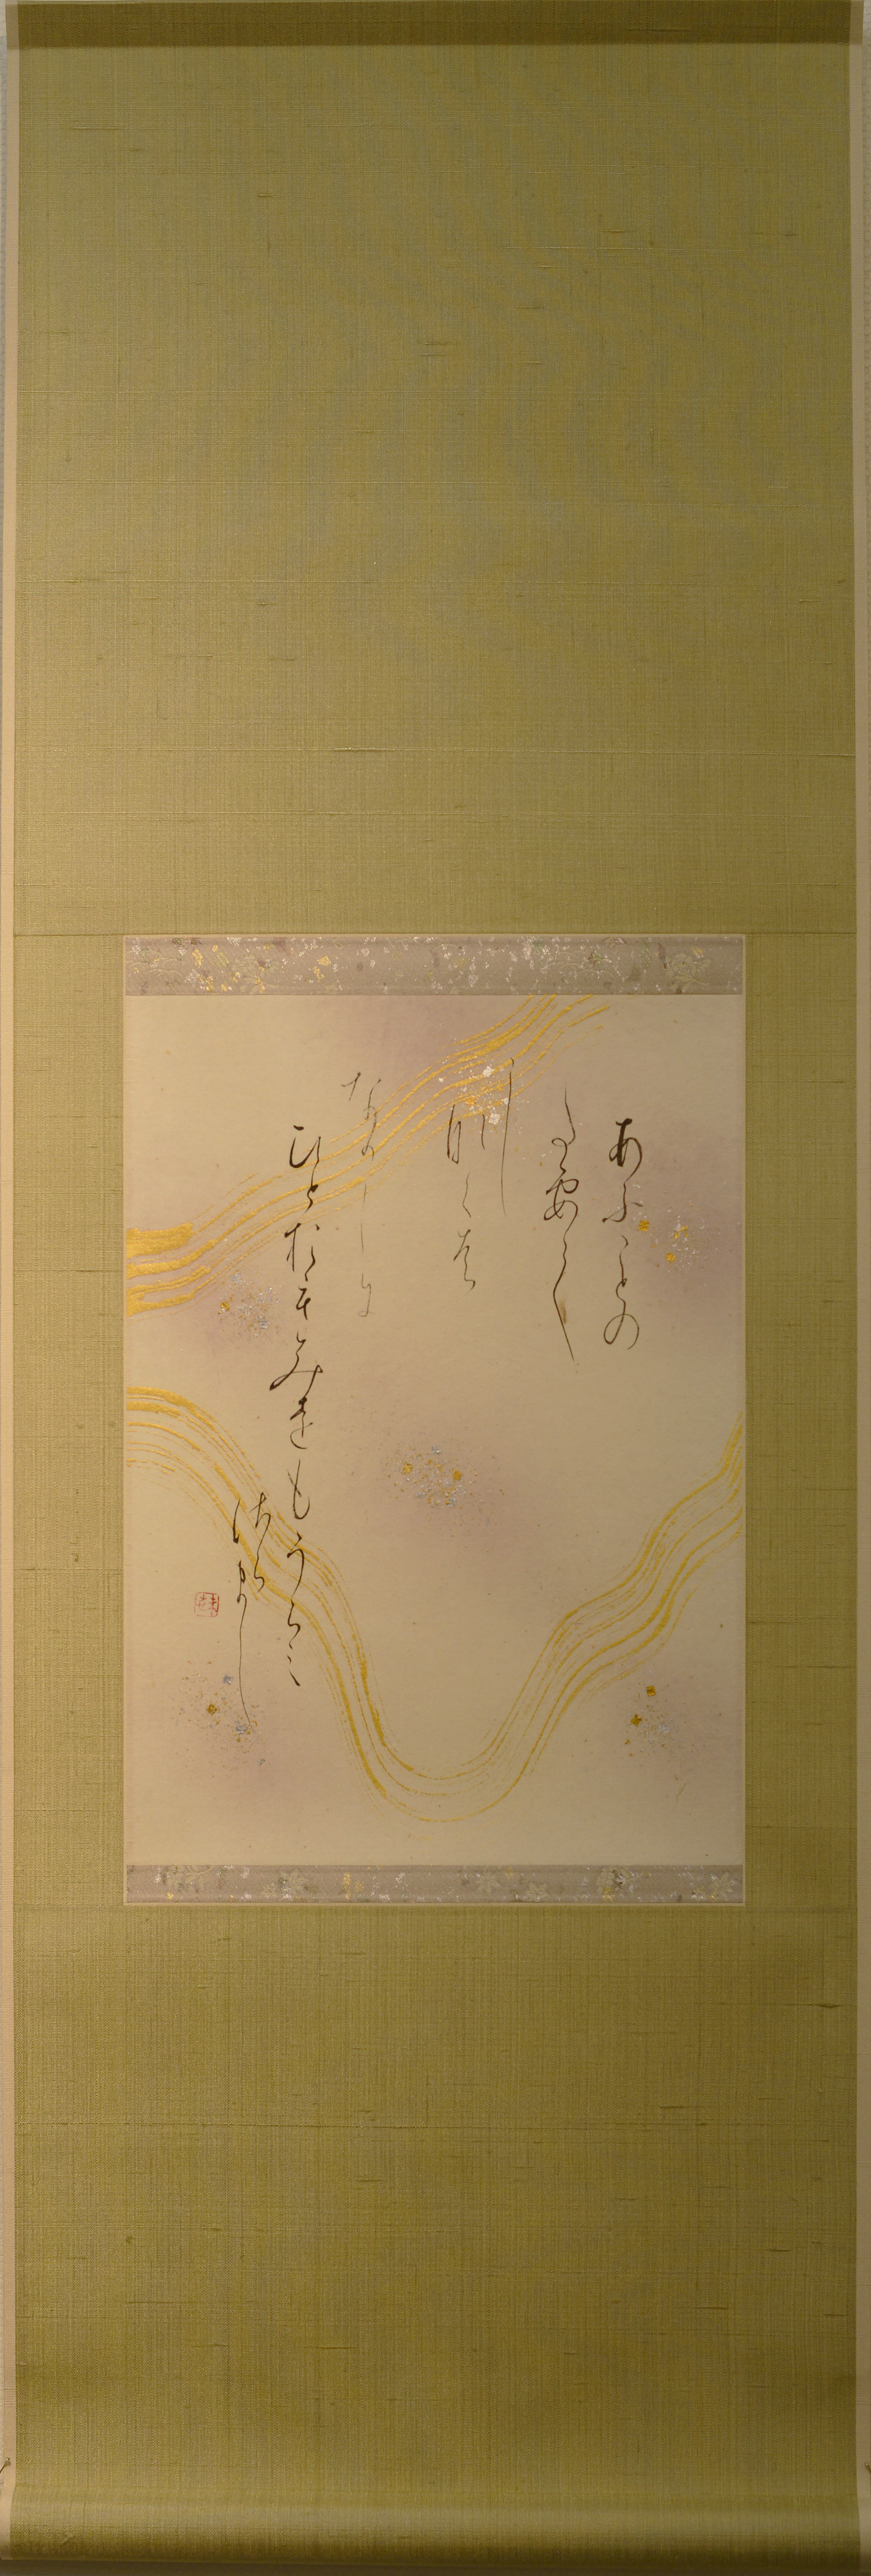 あふことの
たえて
し
なくは
なか〳〵に
ひとをもみをもうらみ
さらまし